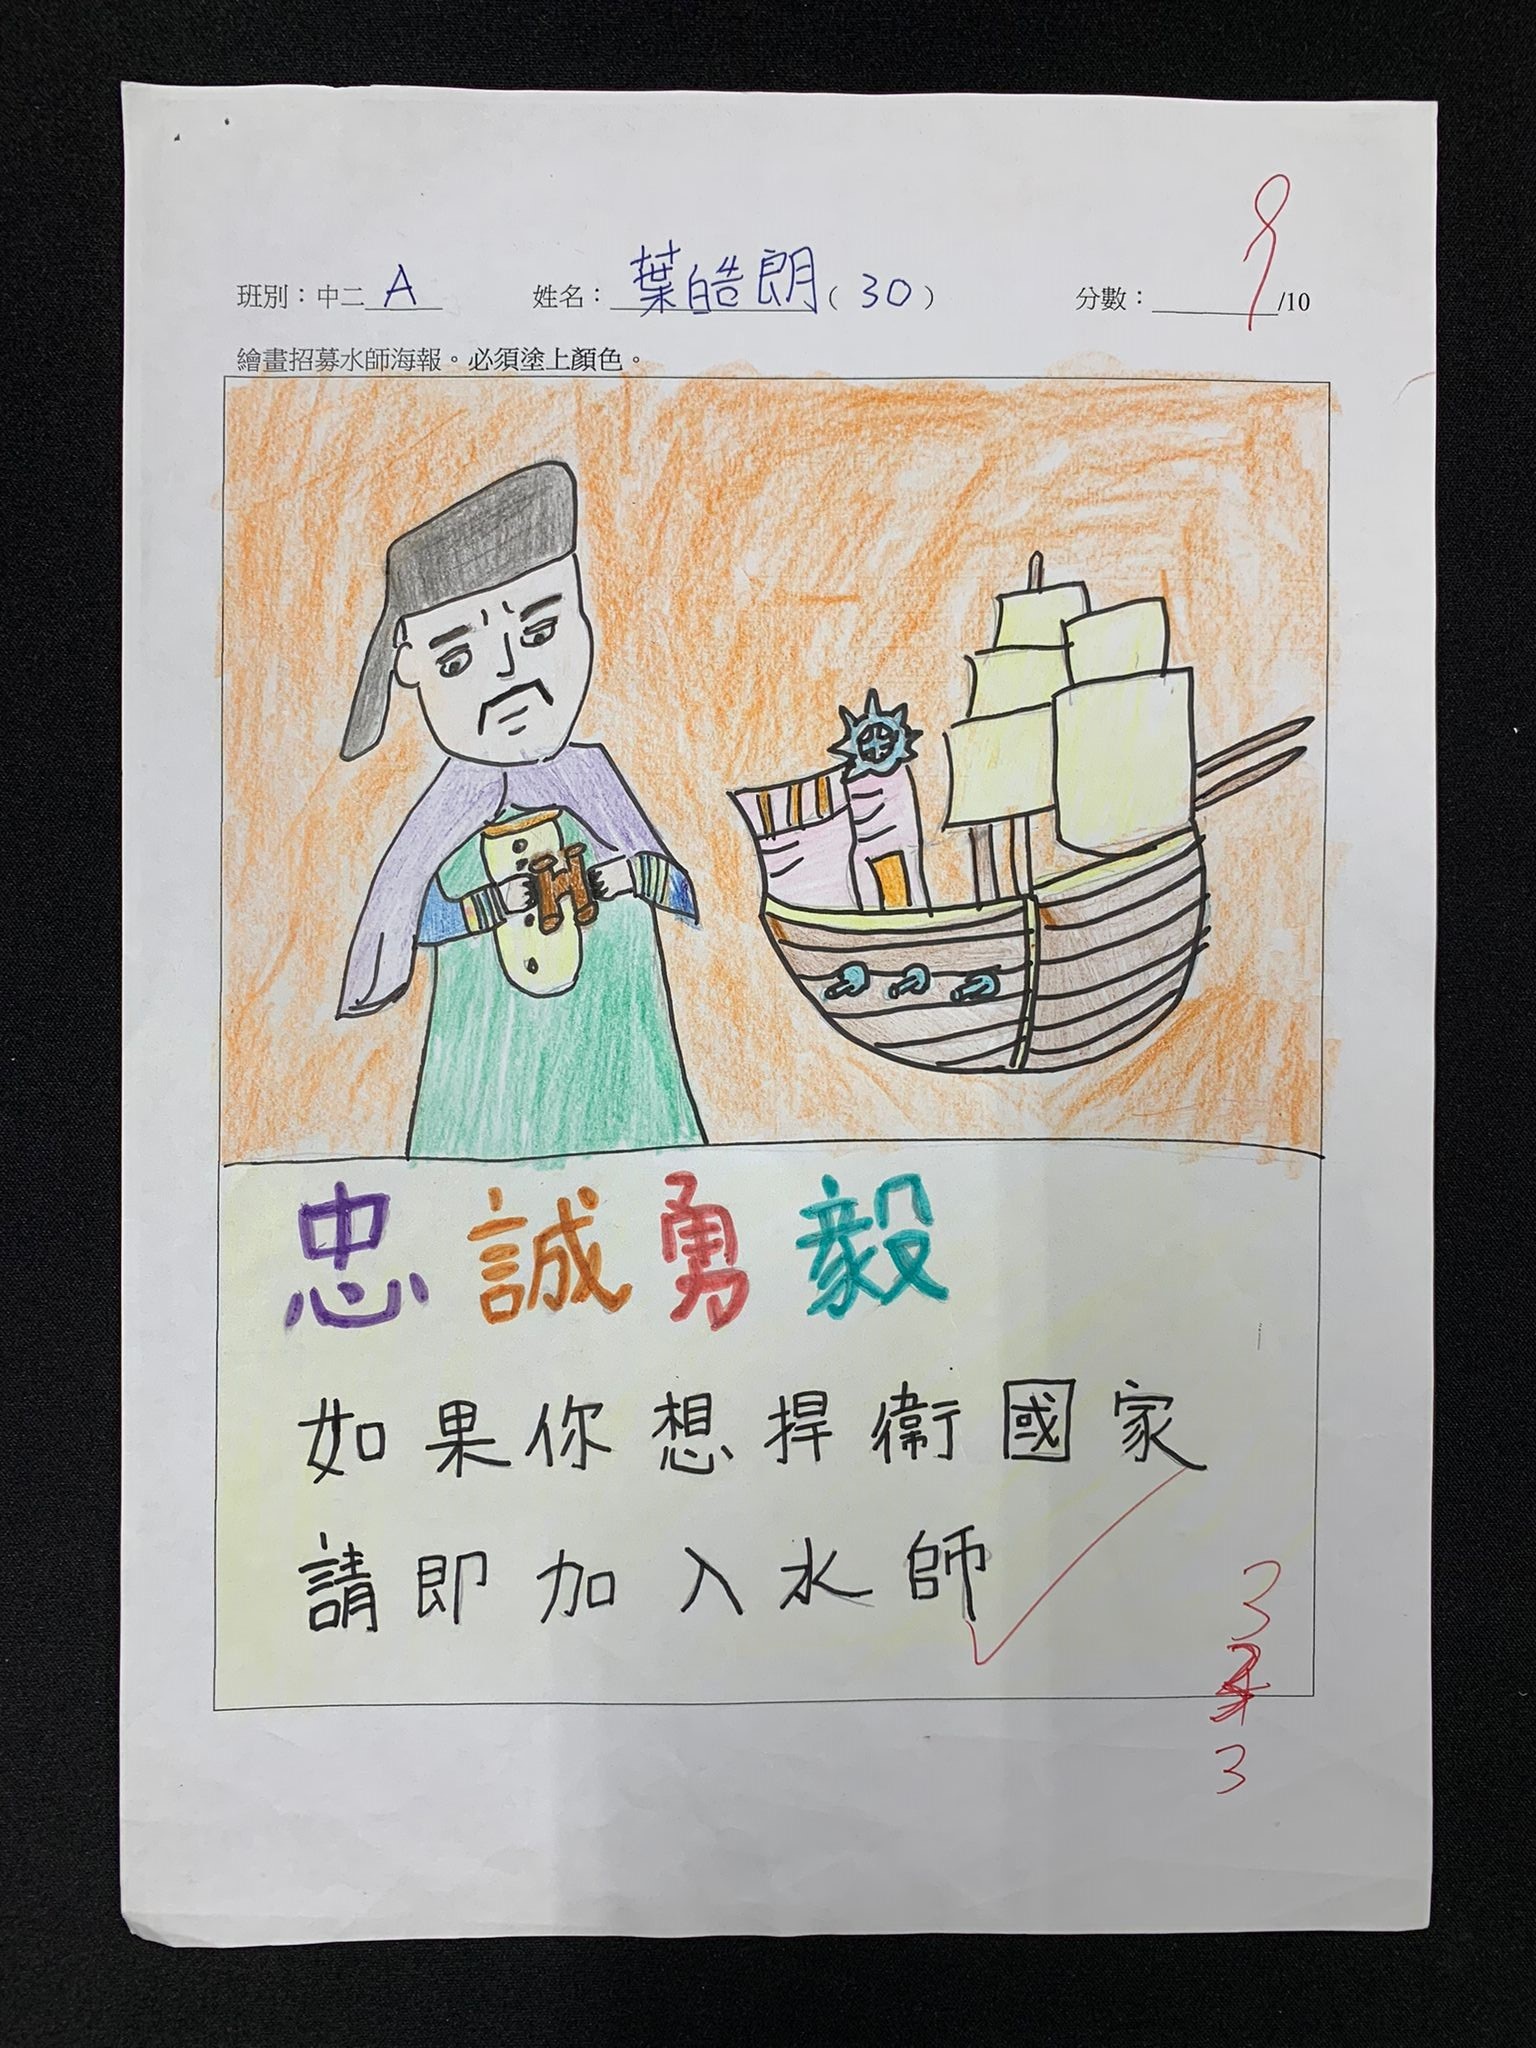 班別：中二 A 姓名：葉皓朗（30） 分數：9/10
繪畫招募水師海報。必須塗上顏色。
忠誠勇毅
如果你想捍衛國家
請即加入水師
3
3